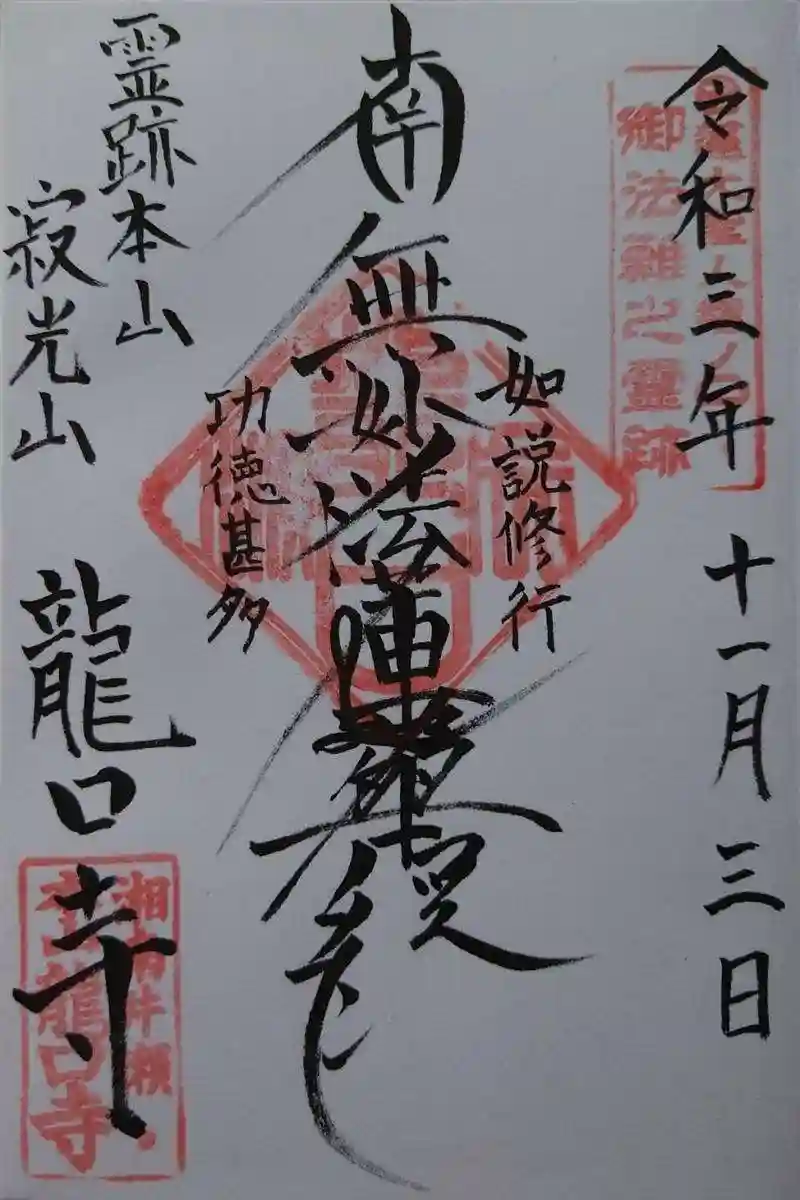 令和三年 十一月三日
御法難之靈跡
如説修行
南無妙法蓮華経
功徳甚多
霊跡本山
寂光山
龍口寺
湘南片瀬
龍口寺